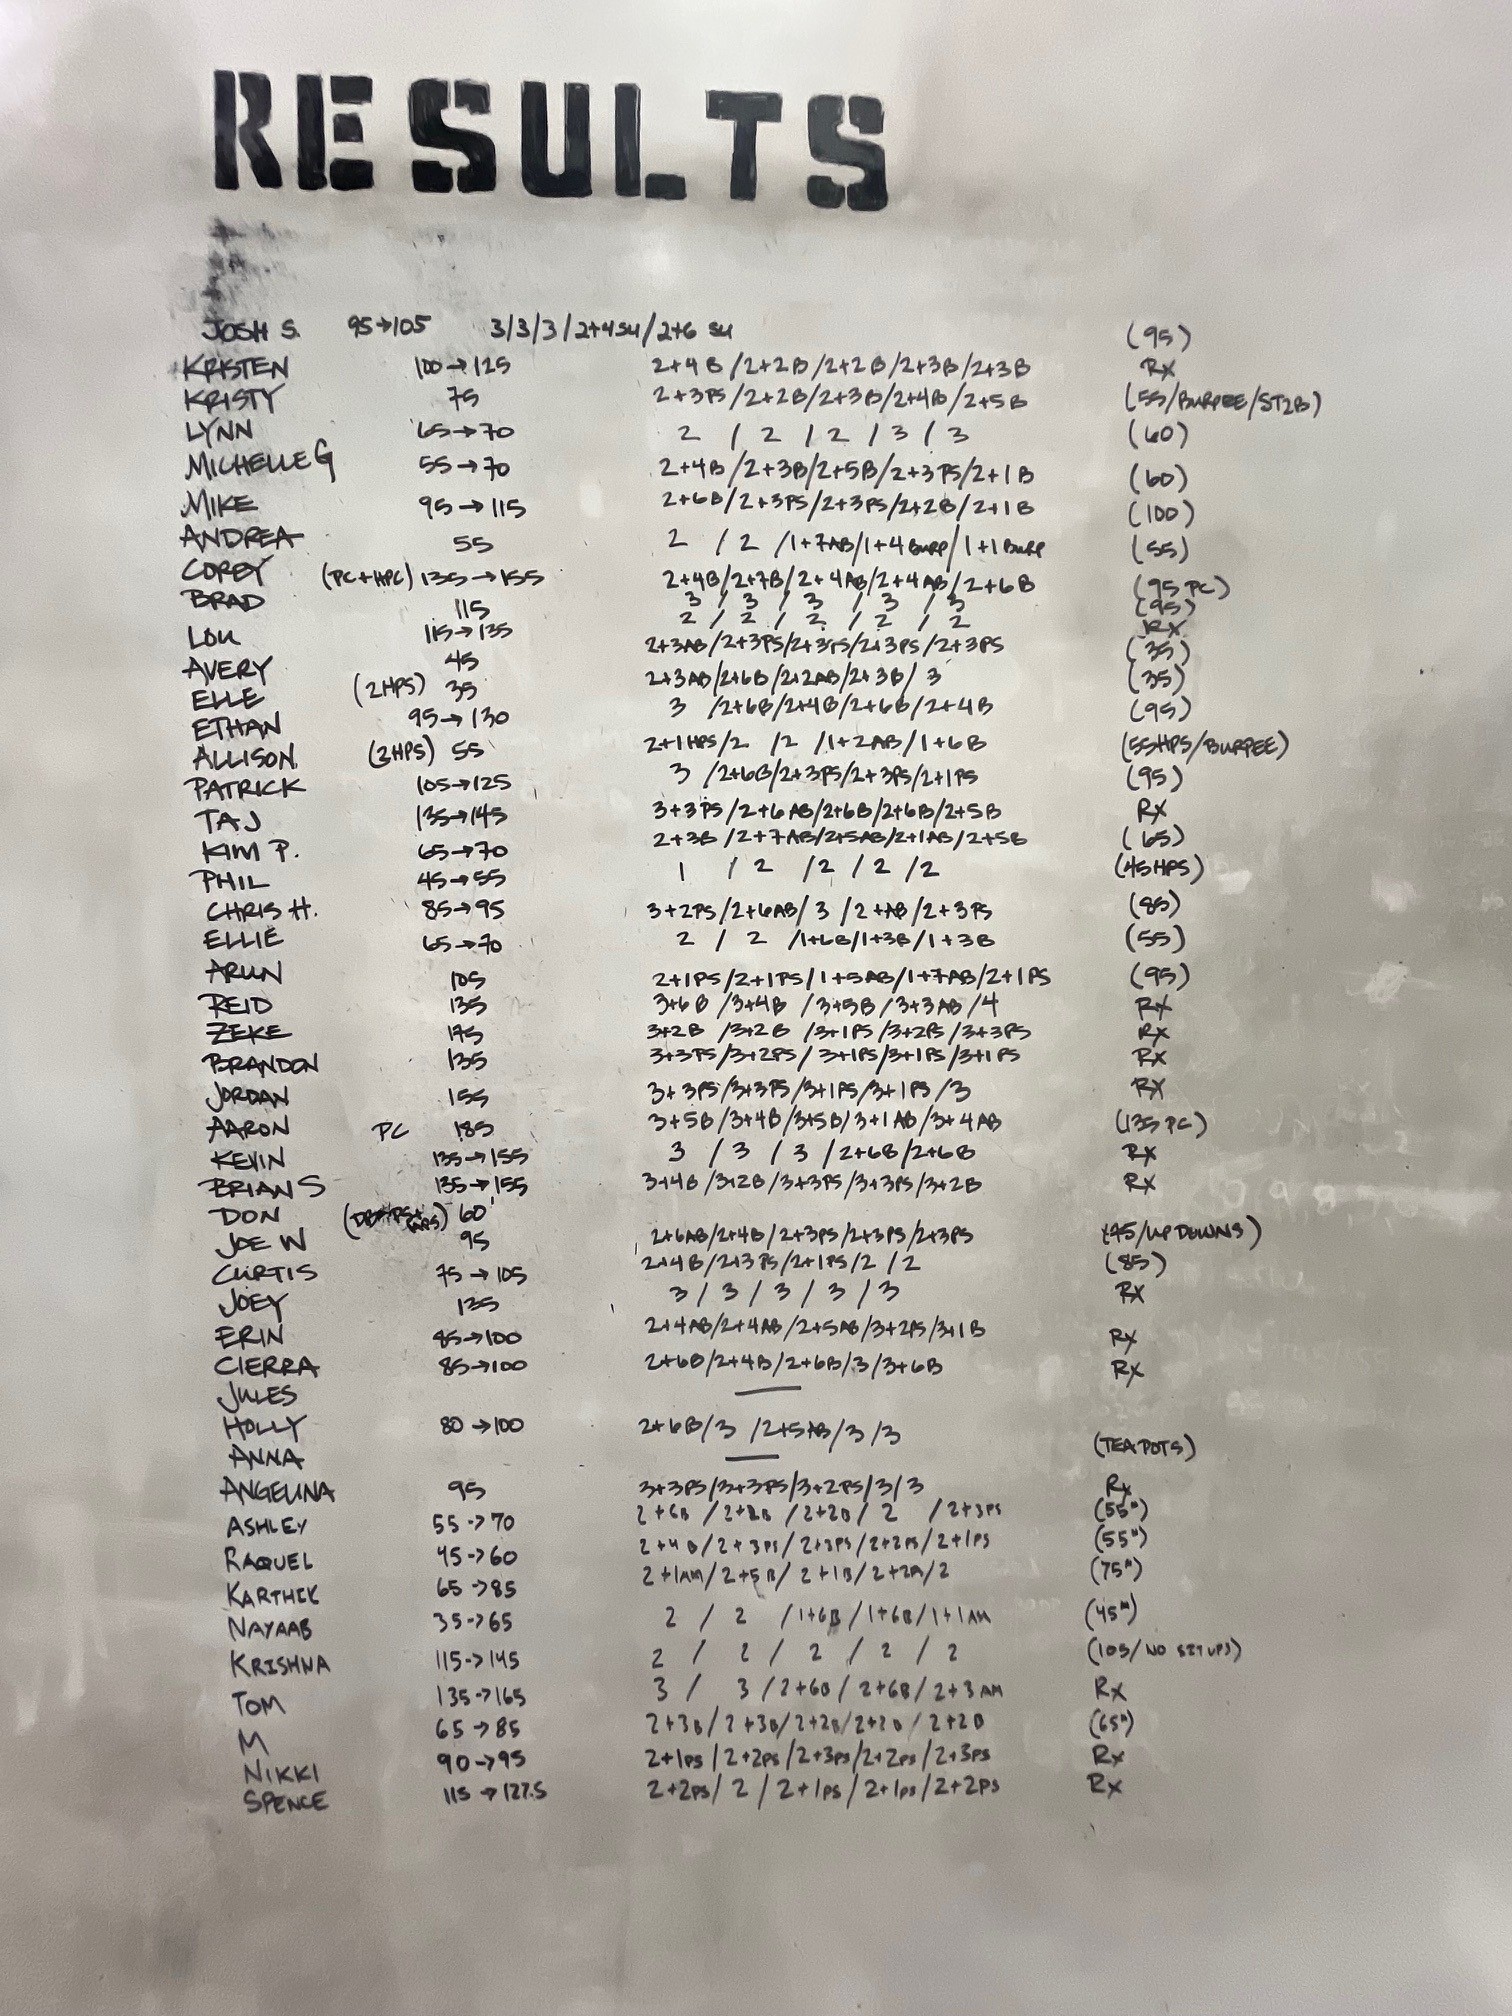 RESULTS
JOSH S. 95→105 3/3/3/2+4SU/2+6 SU (95)
KRISTEN 100→125 2+4B/2+2B/2+2B/2+3B/2+3B RX
KRISTY 75 2+3PS/2+2B/2+3B/2+4B/2+5B (55/BURPEE/ST2B)
LYNN 65→70 2 / 2 / 2 / 3 / 3 (60)
MICHELLE G 55→70 2+4B/2+3B/2+5B/2+3PS/2+1B (60)
MIKE 95→115 2+6B/2+3PS/2+3PS/2+2B/2+1B (100)
ANDREA 55 2 / 2 /1+7AB/1+4BURP/1+1BURP (55)
COREY (PC+HPC) 135→155 2+4B/2+7B/2+4AB/2+4AB/2+6B (95 PC)
BRAD 115 3 / 3 / 3 / 3 / 3 (95)
LOU 115→135 2 / 2 / 2 / 2 / 2 RX
AVERY 45 2+3AB/2+3PS/2+3PS/2+3PS/2+3PS (35)
ELLE (2HPS) 35 2+3AB/2+6B/2+2AB/2+3B/3 (35)
ETHAN 95→130 3 /2+6B/2+4B/2+6B/2+4B (95)
ALLISON (2HPS) 55 2+1HPS/2 /2 /1+2AB/1+6B (55HPS/BURPEE)
PATRICK 105→125 3 /2+6B/2+3PS/2+3PS/2+1PS (95)
TAJ 135→145 3+3PS/2+6AB/2+6B/2+6B/2+5B RX
KIM P. 65→70 2+3B/2+7AB/2+5AB/2+1AB/2+5B (65)
PHIL 45→55 1 / 2 /2 / 2 /2 (45HPS)
CHRIS H. 85→95 3+2PS/2+6AB/ 3 /2+AB/2+3PS (85)
ELLIE 65→70 2 / 2 /1+6B/1+3B/1+3B (55)
ARUN 105 2+1PS/2+1PS/1+5AB/1+7AB/2+1PS (95)
REID 135 3+6B/3+4B/3+5B/3+3AB/4 RX
ZEKE 175 3+2B/3+2B/3+1PS/3+2PS/3+3PS RX
BRANDON 135 3+3PS/3+2PS/3+1PS/3+1PS/3+1PS RX
JORDAN 155 3+3PS/3+3PS/3+1PS/3+1PS/3 RX
AARON PC 185 3+5B/3+4B/3+5B/3+1AB/3+4AB (135 PC)
KEVIN 135→155 3 / 3 / 3 /2+6B/2+6B RX
BRIAN S 135→155 3+4B/3+2B/3+3PS/3+3PS/3+2B RX
DON 60
JOE W 95 2+6AB/2+4B/2+3PS/2+3PS/2+3PS (45/UP DOWNS)
CURTIS 75→105 2+4B/2+3PS/2+1PS/2 /2 (85)
JOEY 135 3 / 3 / 3 / 3 / 3 RX
ERIN 85→100 2+4AB/2+4AB/2+5AB/3+2PS/3+1B RX
CIERRA 85→100 2+6B/2+4B/2+6B/3/3+6B RX
JULES —
HOLLY 80→100 2+6B/3 /2+5AB/3/3
ANNA — (TEAPOTS)
ANGELINA 95 3+3PS/3+3PS/3+2PS/3/3 RX
ASHLEY 55→70 2+6B / 2+2B /2+2B/ 2 / 2+3PS (55#)
RAQUEL 45→60 2+4B/2+3PS/2+3PS/2+2PS/2+1PS (55#)
KARTHIK 65→85 2+1AM/2+5B/2+1B/2+2B/2 (75#)
NAYAAB 35→65 2 / 2 /1+6B/1+6B/1+1AM (45#)
KRISHNA 115→145 2 / 2 / 2 / 2 / 2 (105/NO SITUPS)
TOM 135→165 3 / 3 /2+6B/2+6B/2+3AM RX
M 65→85 2+3B/2+3B/2+2B/2+2B/2+2B (65#)
NIKKI 90→95 2+1PS/2+2PS/2+3PS/2+2PS/2+3PS RX
SPENCE 115→127.5 2+2PS/ 2 / 2+1PS/2+1PS/2+2PS RX